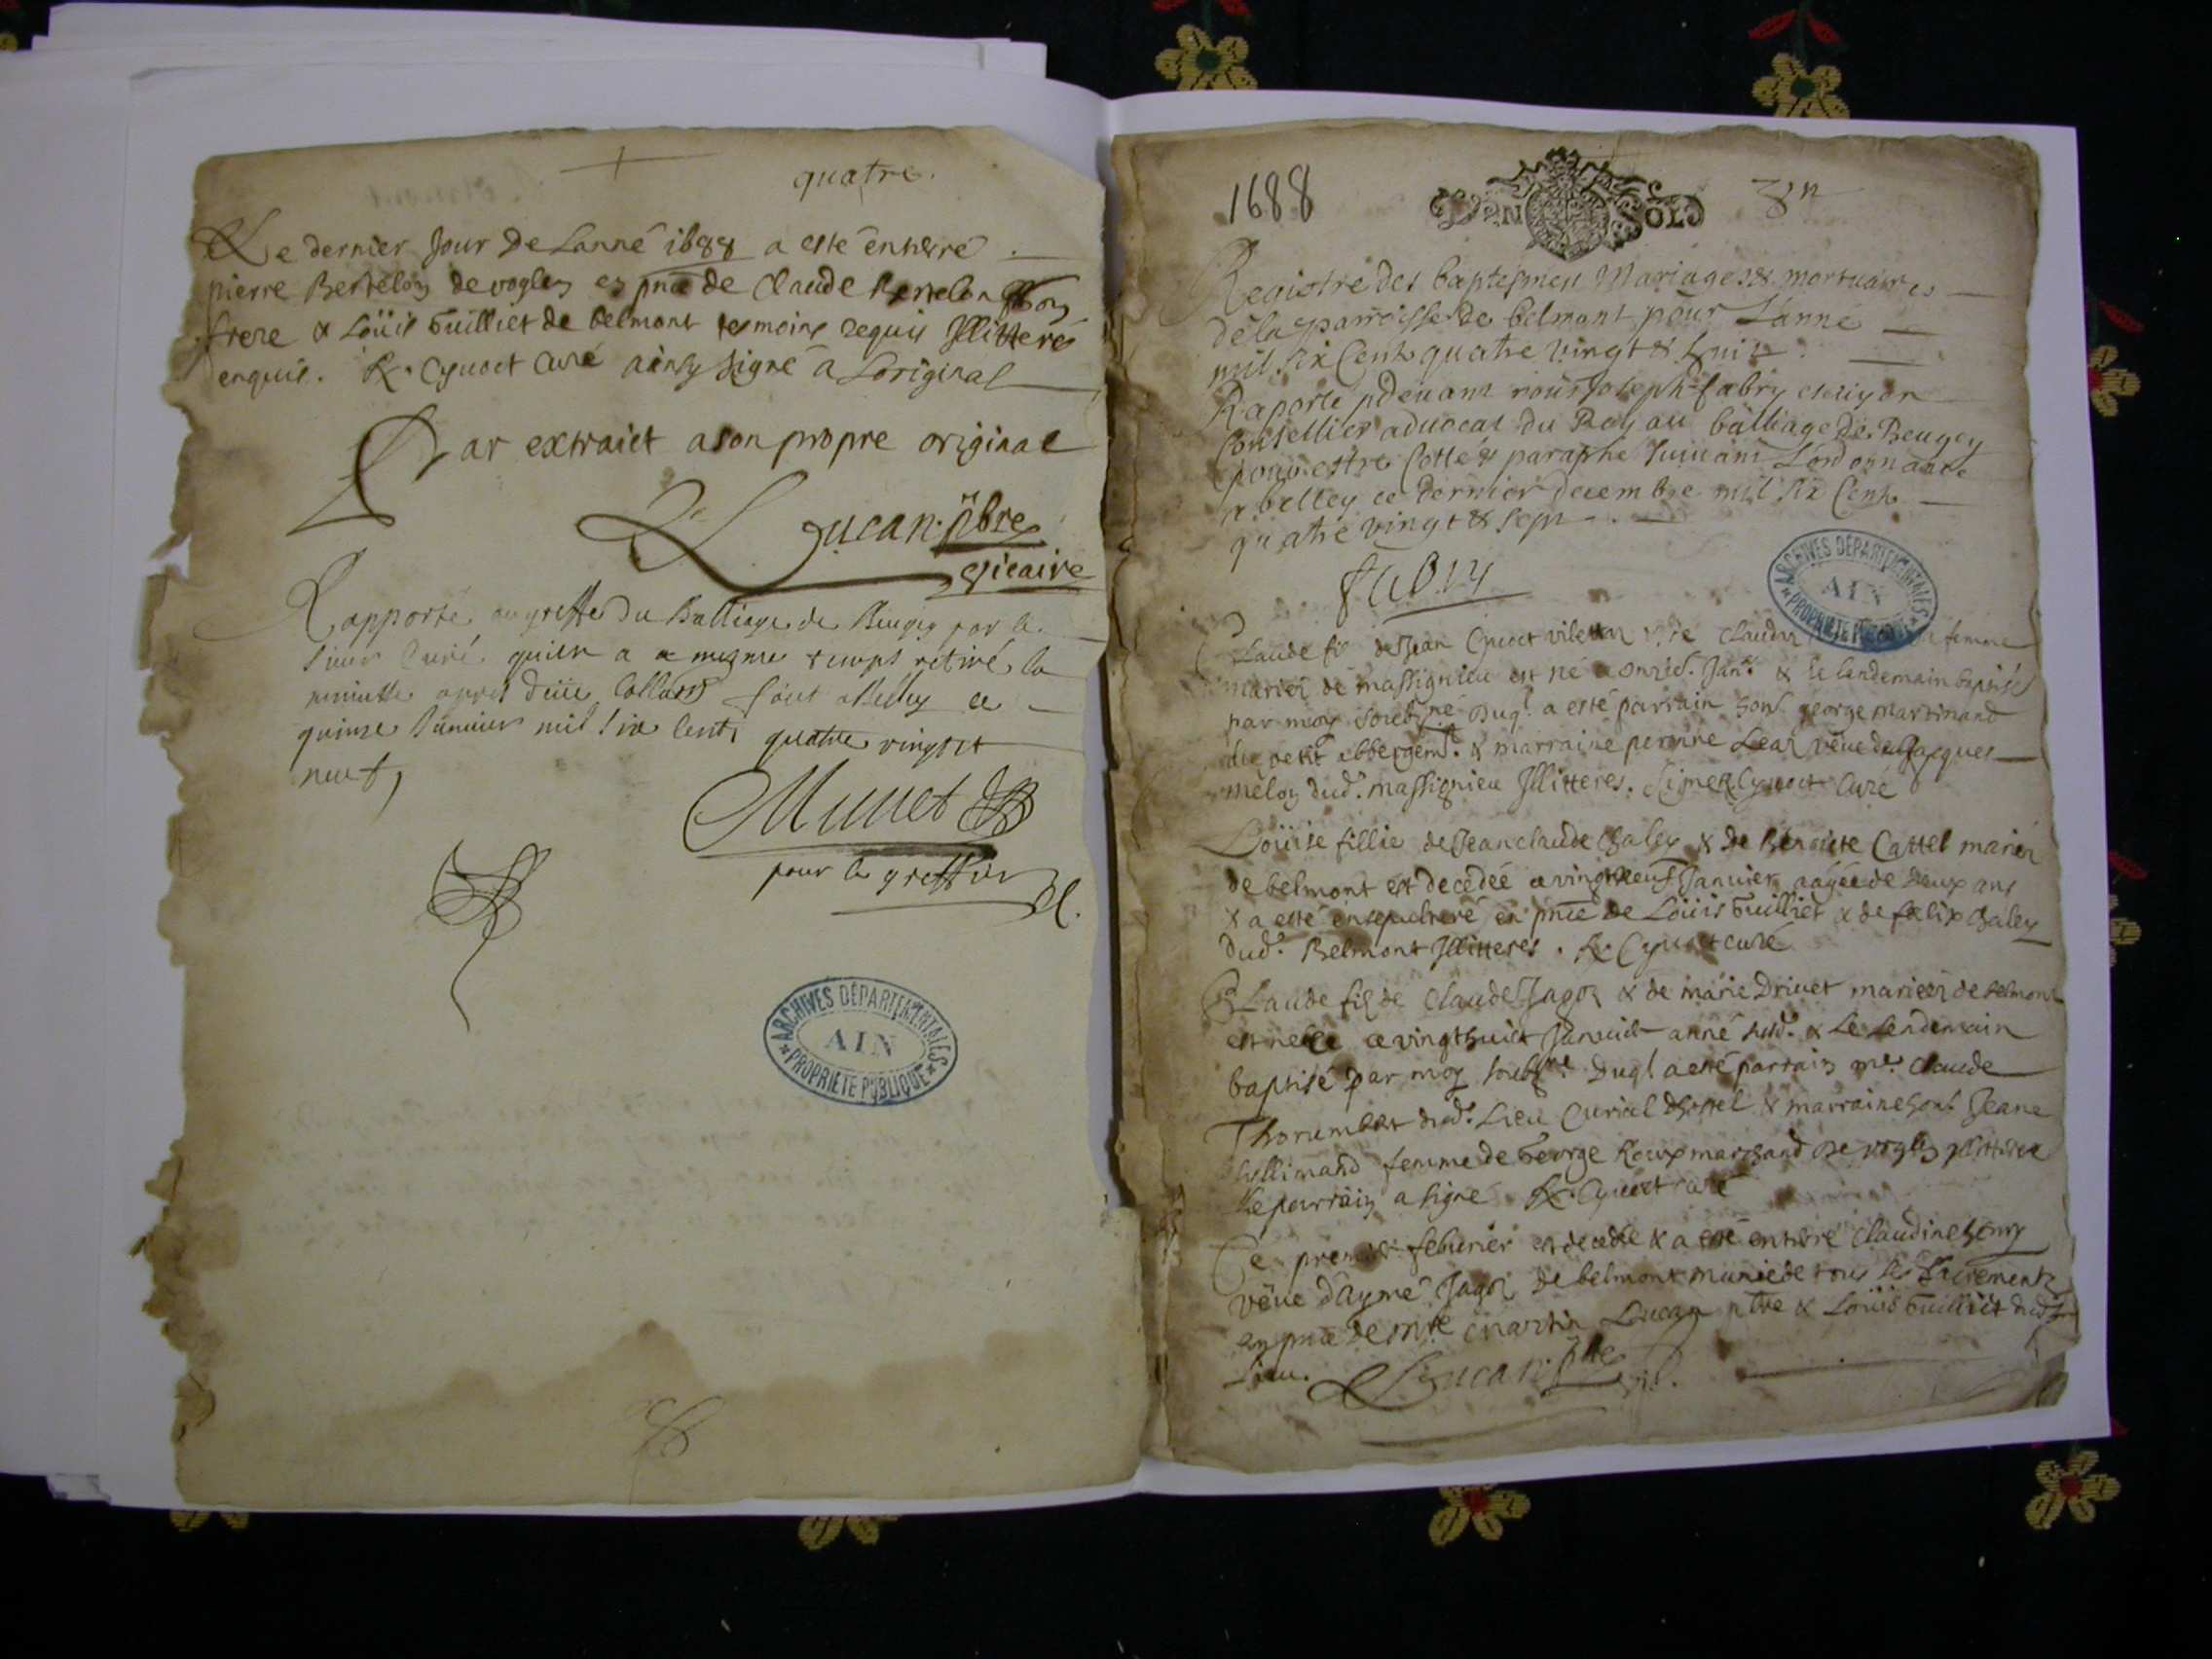 quatre.
Le dernier Jour de Lanné 1688 a esté enterré
pierre Bertelon de voglen en pnce de Claude Bertelon son
frere & Loüis Guilliet de belmont tesmoins requis Illitterés
enquis. R. Cyuoct Curé ainsy signé a Loriginal
Par extraict a son propre original
Lucan. pbre
vicaire
Rapporté au greffe du Balliage de Beugey par le
sieur Curé qui en a a mesme temps retiré la
minutte apres deüe Collaõn fait a Belley ce
quinze Januier mil six cents quatre vingts et
neuf,
Munet
pour le greffier
ARCHIVES DÉPARTEMENTALES
AIN
PROPRIÉTÉ PUBLIQUE
1688 DEN SOLS
Registre des baptesmes Mariages & mortuaires
de la parroisse de belmont pour Lanné
mil six Cents quatre vingt & huit
Raporté pdeuant nous Joseph fabry escuyer
Conseillier aduocat du Roy au balliage de Beugey
pour estre Cotté & paraphé suiuant Lordonnance
a belley ce dernier decembre mil six Cents
quatre vingt & sept
fabry
ARCHIVES DÉPARTEMENTALES
AIN
PROPRIÉTÉ PUBLIQUE
Claude fils de Jean Cyuoct femme
mariéz de massignieu est né Jan. & le lendemain baptisé
par moy soubsné Duql. a esté parrain hon. george martinand
du petit & marraine perrine Lear veue de Jacques
melon dud. massignieu Illitteres. Signe R. Cyuoct Curé
Loüise fillie de Jean claude Galey & de Benoite Cattel mariéz
de belmont est decedée ce vingtneuf Januier aagée de deux ans
& a esté ensepulturé en pnce de Loüis Guilliet & de felix Galey
dud. Belmont Illitteres. R. Cyuoct curé
Claude fils de Claude Jagoz & de marie Driuet mariéz de belmont
est ce vingthuict Januier anné susd. & Le Lendemain
baptisé par moy soubsné Duql a esté parrain me. Claude
Thorumbert dud. Lieu Curial & marraine hon. Jeane
femme de George Roux marchand de voglen
Le parrain a signé R. Cyuoct curé
Ce premier feburier est decedée & a esté enterré Claudine
veüe d'Aymé Jagoz de belmont munie de tous les sacrements
en pnce de mre martin Lucan pbre & Loüis Guilliet dud.
Lieu. Lucan. pbre